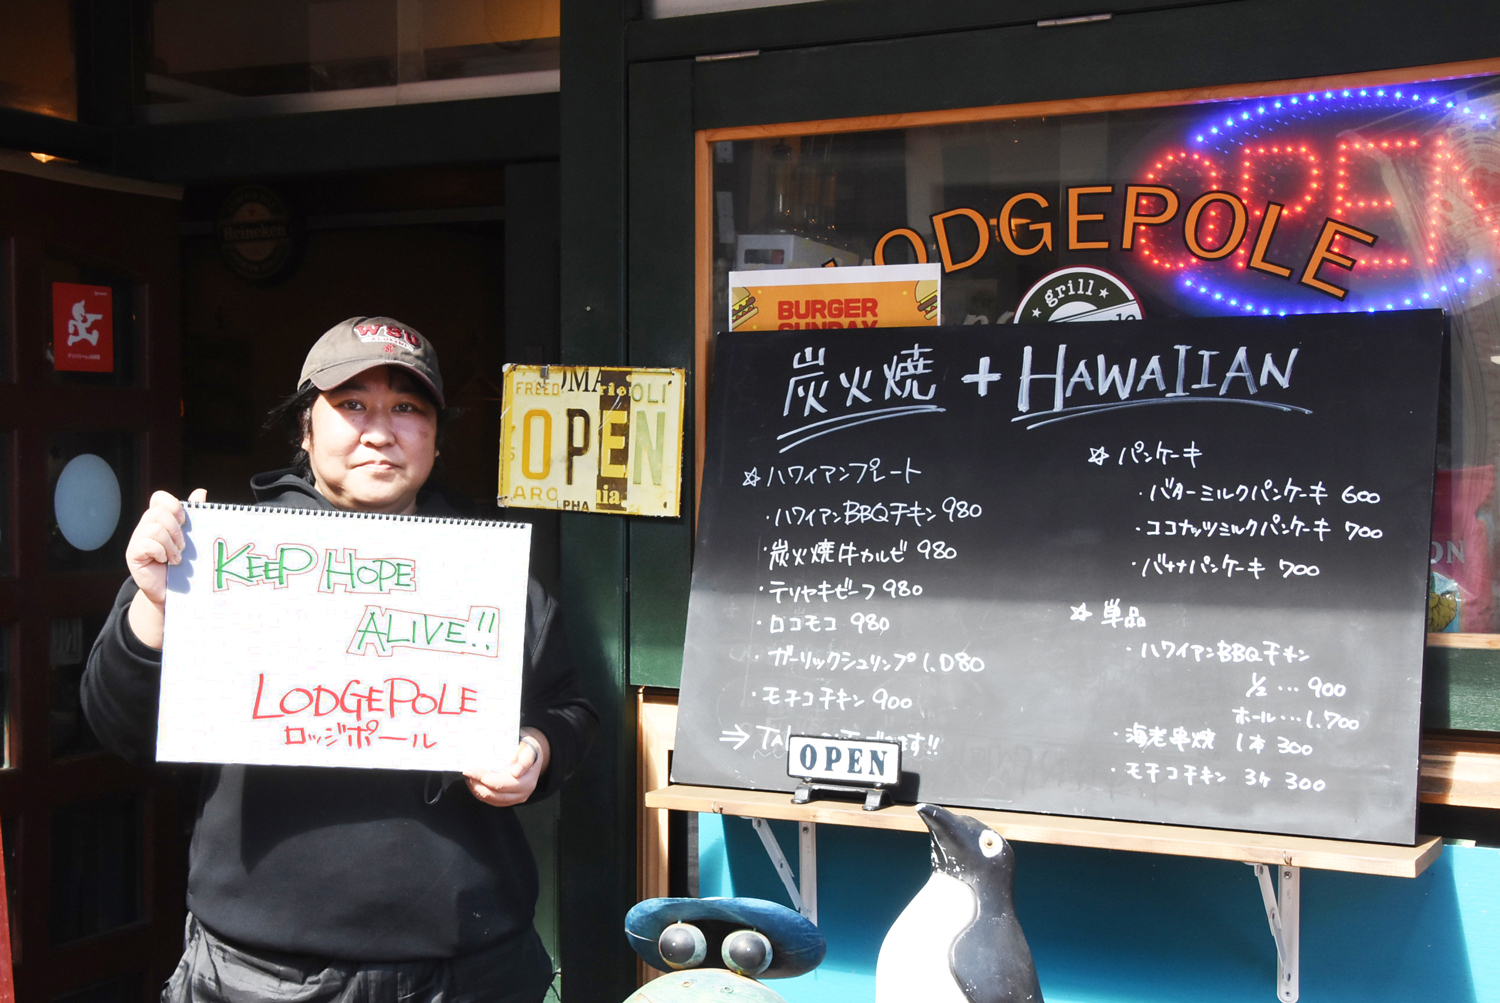 OPEN
LODGEPOLE
Heineken
BURGER
SUNDAY
grill
WSU
FREED
OLI
OPEN
PHA
KEEP HOPE
ALIVE!!
LODGEPOLE
ロッジポール
炭火焼 + HAWAIIAN
☆ ハワイアンプレート
・ハワイアンBBQチキン 980
・炭火焼牛カルビ 980
・テリヤキビーフ 980
・ロコモコ 980
・ガーリックシュリンプ 1,080
・モチコチキン 900
OPEN
☆ パンケーキ
・バターミルクパンケーキ 600
・ココナッツミルクパンケーキ 700
・バナナパンケーキ 700
☆ 単品
・ハワイアンBBQチキン
1/2 … 900
ホール … 1,700
・海老串焼 1本 300
・モチコチキン 3ヶ 300